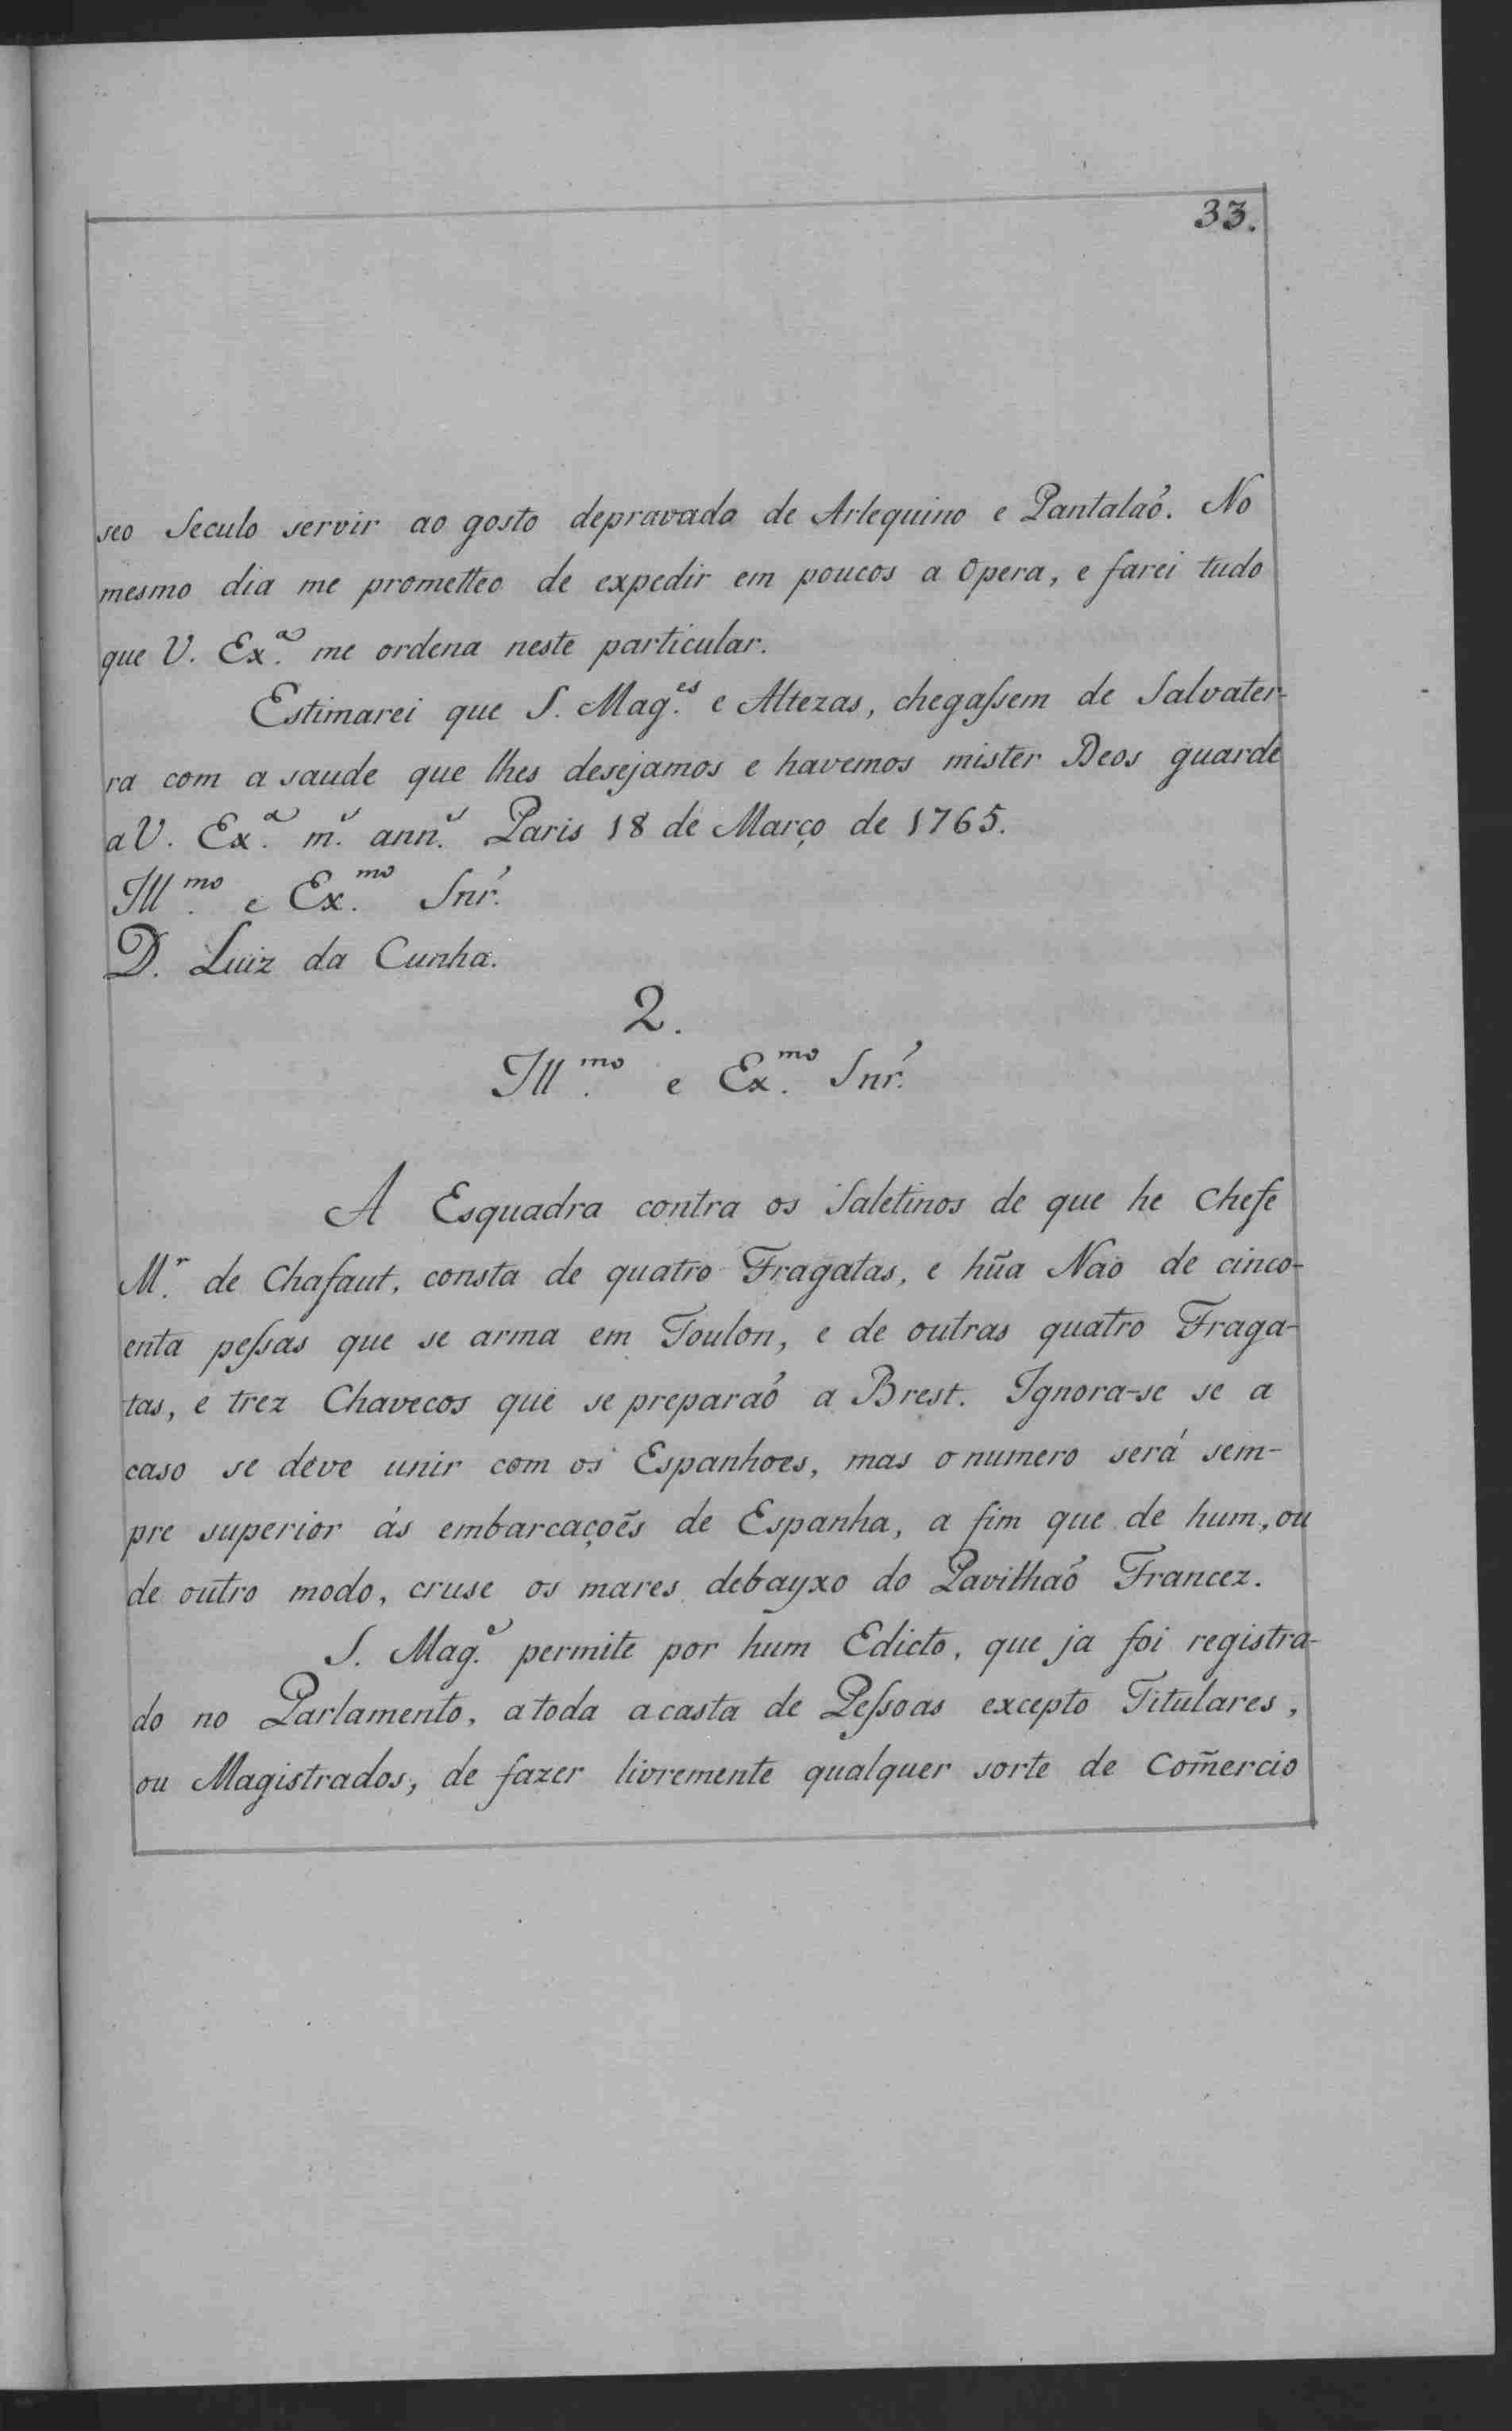 33.
seo Seculo servir ao gosto depravado de Arlequino e Pantalaõ. No
mesmo dia me prometteo de expedir em poucos a Opera, e farei tudo
que V. Ex.ª me ordena neste particular.
Estimarei que S. Mag.es e Altezas, chegaſsem de Salvater-
ra com a saude que lhes desejamos e havemos mister Deos guarde
a V. Ex.ª m.s ann.s Paris 18 de Março de 1765.
Ill.mo e Ex.mo Snr.
D. Luiz da Cunha.
2.
Ill.mo e Ex.mo Snr.
A Esquadra contra os Saletinos de que he Chefe
M.r de Chafaut, consta de quatro Fragatas, e hũa Nao de cinco-
enta peſsas que se arma em Toulon, e de outras quatro Fraga-
tas, e trez Chavecos que se preparaõ a Brest. Ignora-se se a
caso se deve unir com os Espanhoes, mas o numero será sem-
pre superior ás embarcaçoẽs de Espanha, a fim que de hum, ou
de outro modo, cruse os mares debayxo do Pavilhaõ Francez.
S. Mag.e permite por hum Edicto, que ja foi registra-
do no Parlamento, a toda a casta de Peſsoas excepto Titulares,
ou Magistrados, de fazer livremente qualquer sorte de Com̃ercio